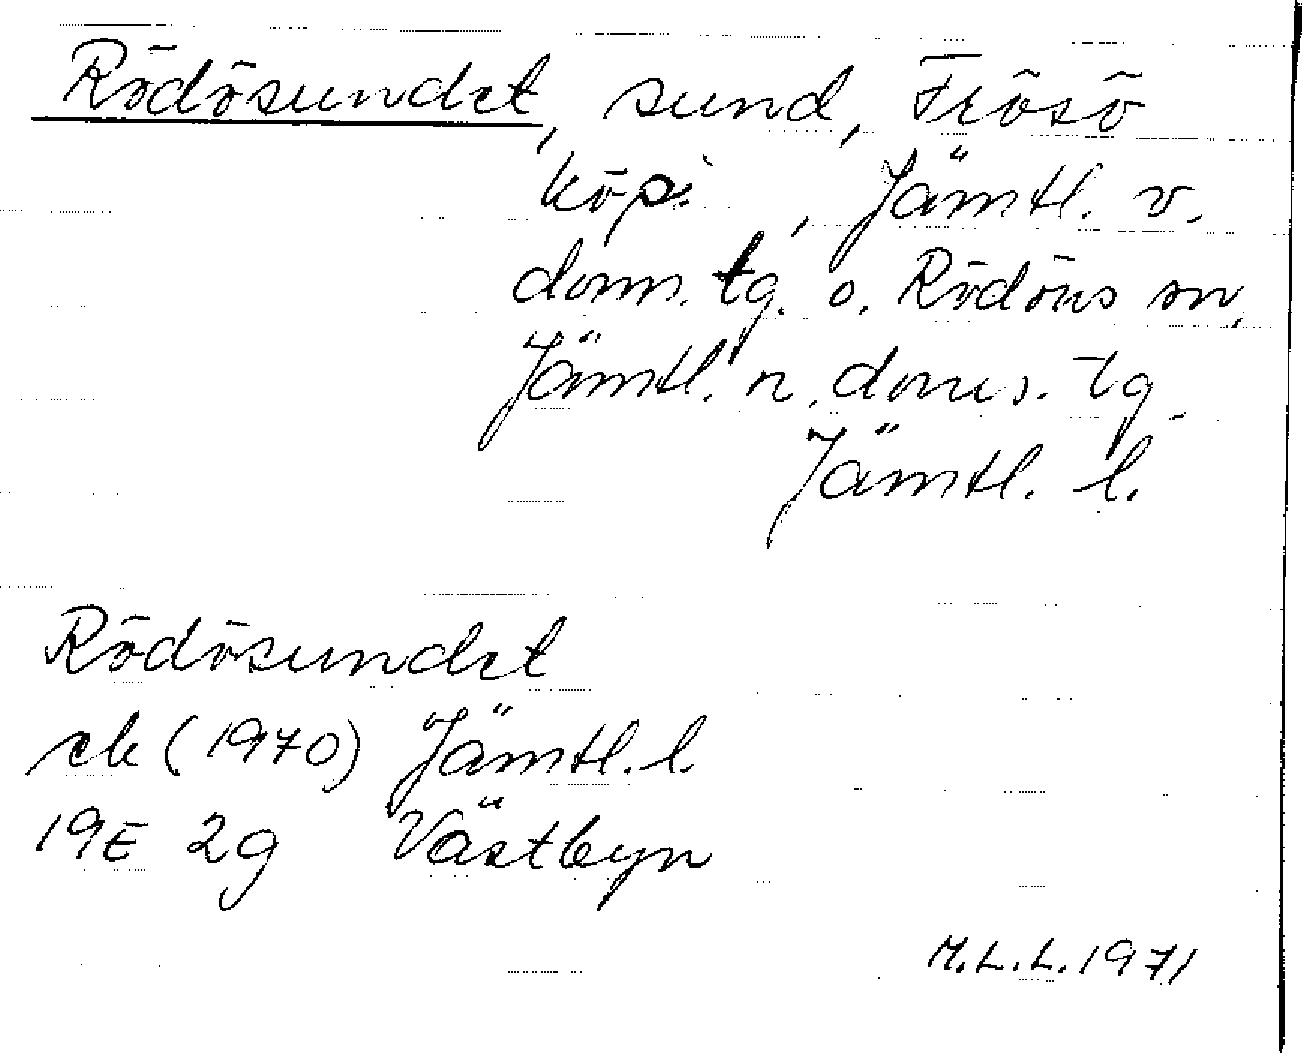 Rödösundet, sund, Frösö
köpi , Jämtl. v.
doms. tg. o. Rödöns sn,
Jämtl. n. doms. tg
Jämtl. l.
Rödösundet
ek (1970) Jämtl. l.
19E 2g Västbyn
M.L.L. 1971